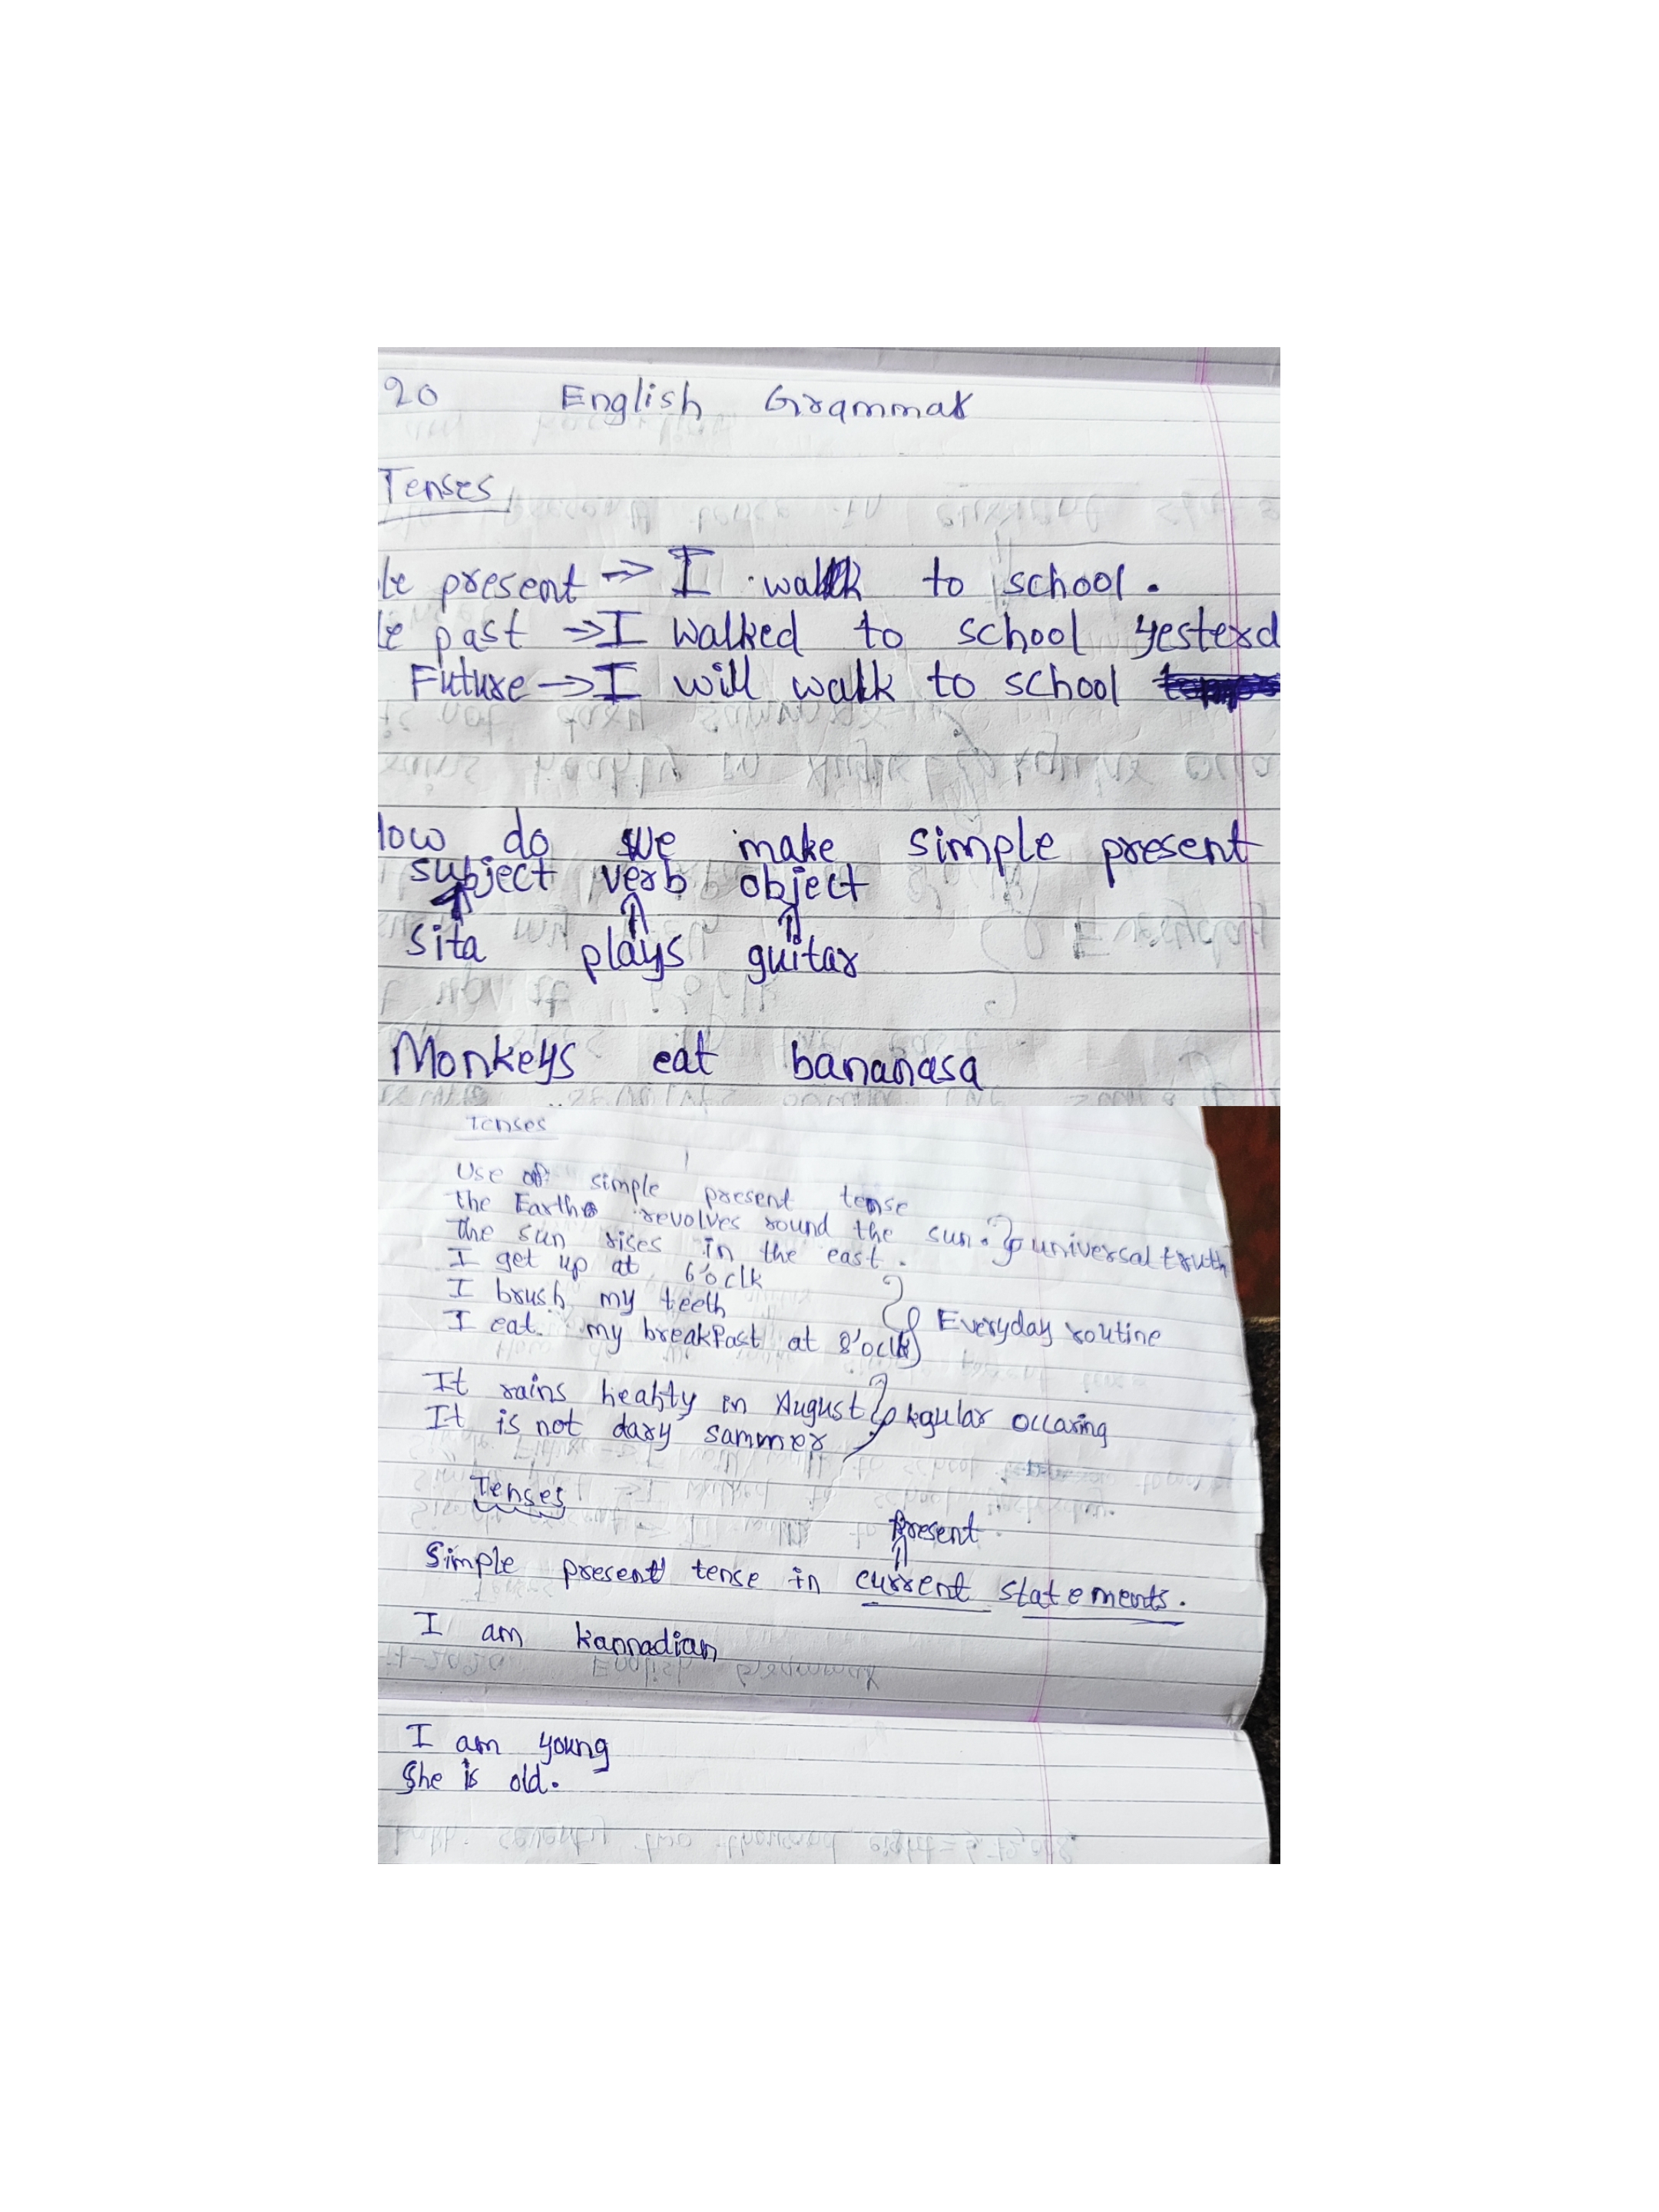 20 English Grammar
Tenses
le present ⇒ I walk to school.
le past ⇒ I walked to school yesterd
Future → I will walk to school
How do we make simple present
subject verb object
sita plays guitar
Monkeys eat bananasa
Tenses
Use of simple present tense
the Earth revolves round the sun. universal truth
the sun rises in the east.
I get up at 6'o clk
I brush my teeth
I eat my breakfast at 8'oclk Everyday routine
It rains in August occaring
It is not dary sammer
Tenses
Present
Simple present tense in current statements.
I am kannadian
I am young
She is old.